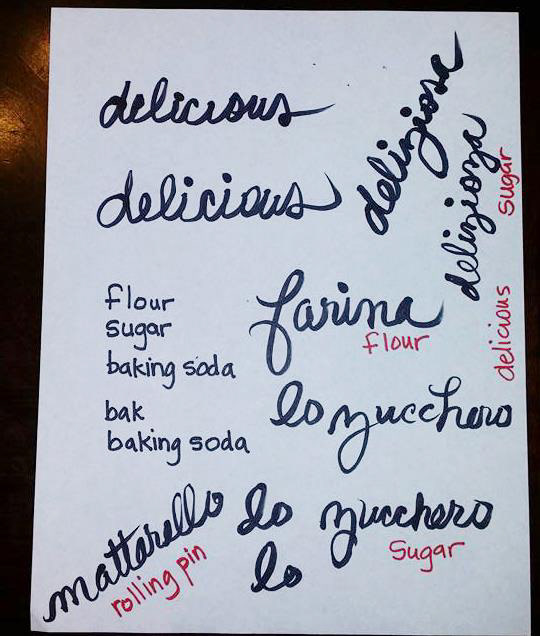 delicious
delicious
deliziosa
delizioza
sugar
delicious
flour
sugar
baking soda
bak
baking soda
farina
flour
lo zucchero
mattarello
rolling pin
lo zucchero
sugar
lo